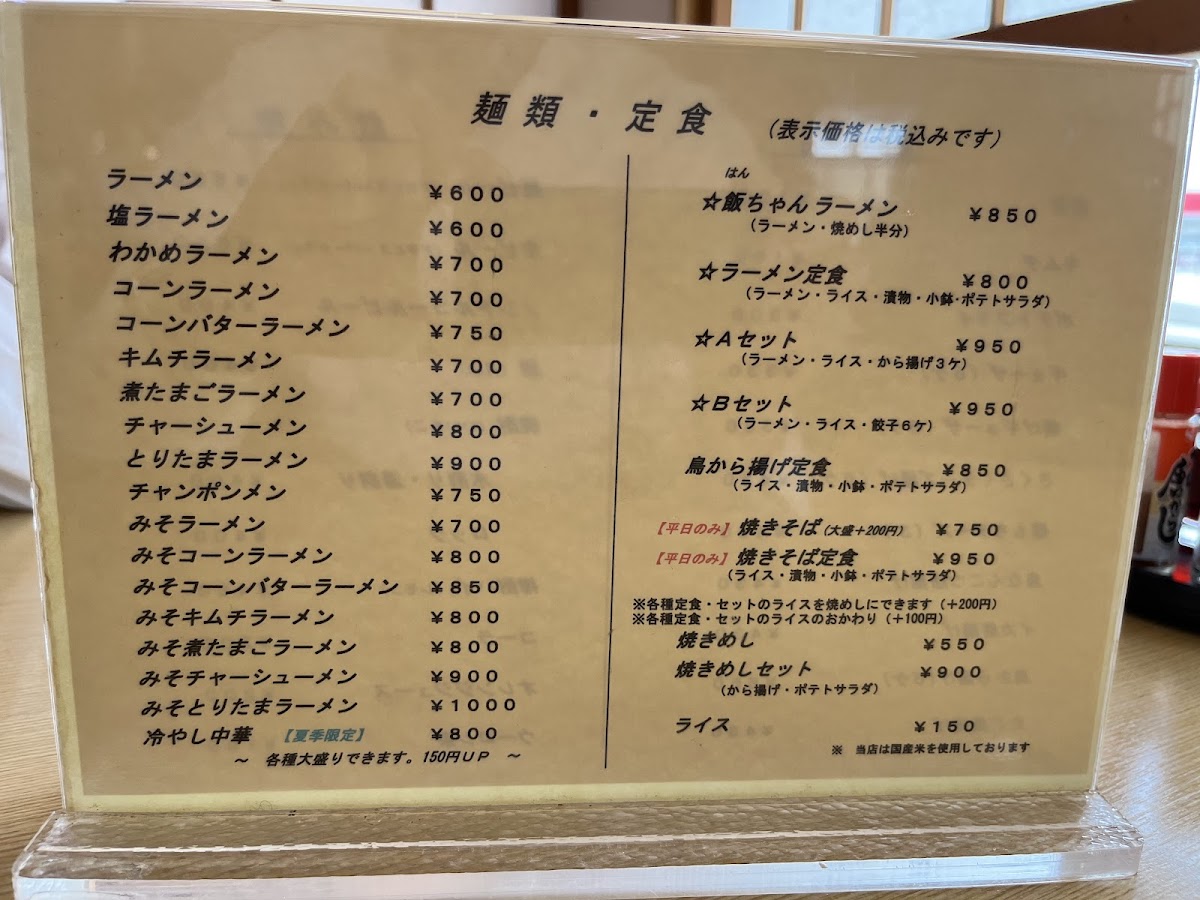 麺類・定食 (表示価格は税込みです)
ラーメン ¥600
塩ラーメン ¥600
わかめラーメン ¥700
コーンラーメン ¥700
コーンバターラーメン ¥750
キムチラーメン ¥700
煮たまごラーメン ¥700
チャーシューメン ¥800
とりたまラーメン ¥900
チャンポンメン ¥750
みそラーメン ¥700
みそコーンラーメン ¥800
みそコーンバターラーメン ¥850
みそキムチラーメン ¥800
みそ煮たまごラーメン ¥800
みそチャーシューメン ¥900
みそとりたまラーメン ¥1000
冷やし中華 【夏季限定】 ¥800
～ 各種大盛りできます。150円UP ～
はん
☆飯ちゃんラーメン ¥850
(ラーメン・焼めし半分)
☆ラーメン定食 ¥800
(ラーメン・ライス・漬物・小鉢・ポテトサラダ)
☆Aセット ¥950
(ラーメン・ライス・から揚げ3ケ)
☆Bセット ¥950
(ラーメン・ライス・餃子6ケ)
鳥から揚げ定食 ¥850
(ライス・漬物・小鉢・ポテトサラダ)
【平日のみ】焼きそば(大盛+200円) ¥750
【平日のみ】焼きそば定食 ¥950
(ライス・漬物・小鉢・ポテトサラダ)
※各種定食・セットのライスを焼めしにできます(+200円)
※各種定食・セットのライスのおかわり(+100円)
焼きめし ¥550
焼きめしセット ¥900
(から揚げ・ポテトサラダ)
ライス ¥150
※ 当店は国産米を使用しております